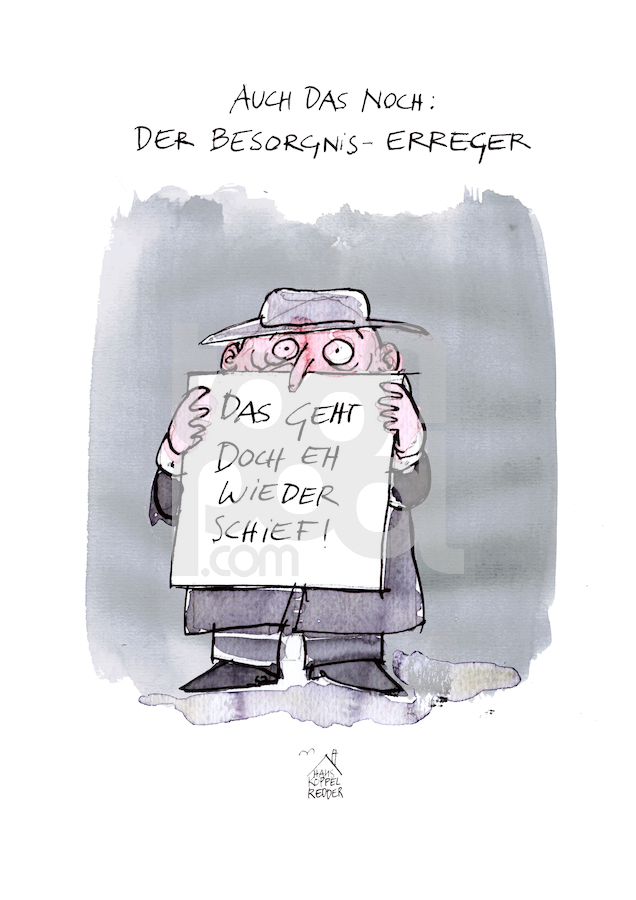 AUCH DAS NOCH:
DER BESORGNIS-ERREGER
DAS GEHT
DOCH EH
WIEDER
SCHIEF!
.com
HAUS
KOPPEL
REDDER